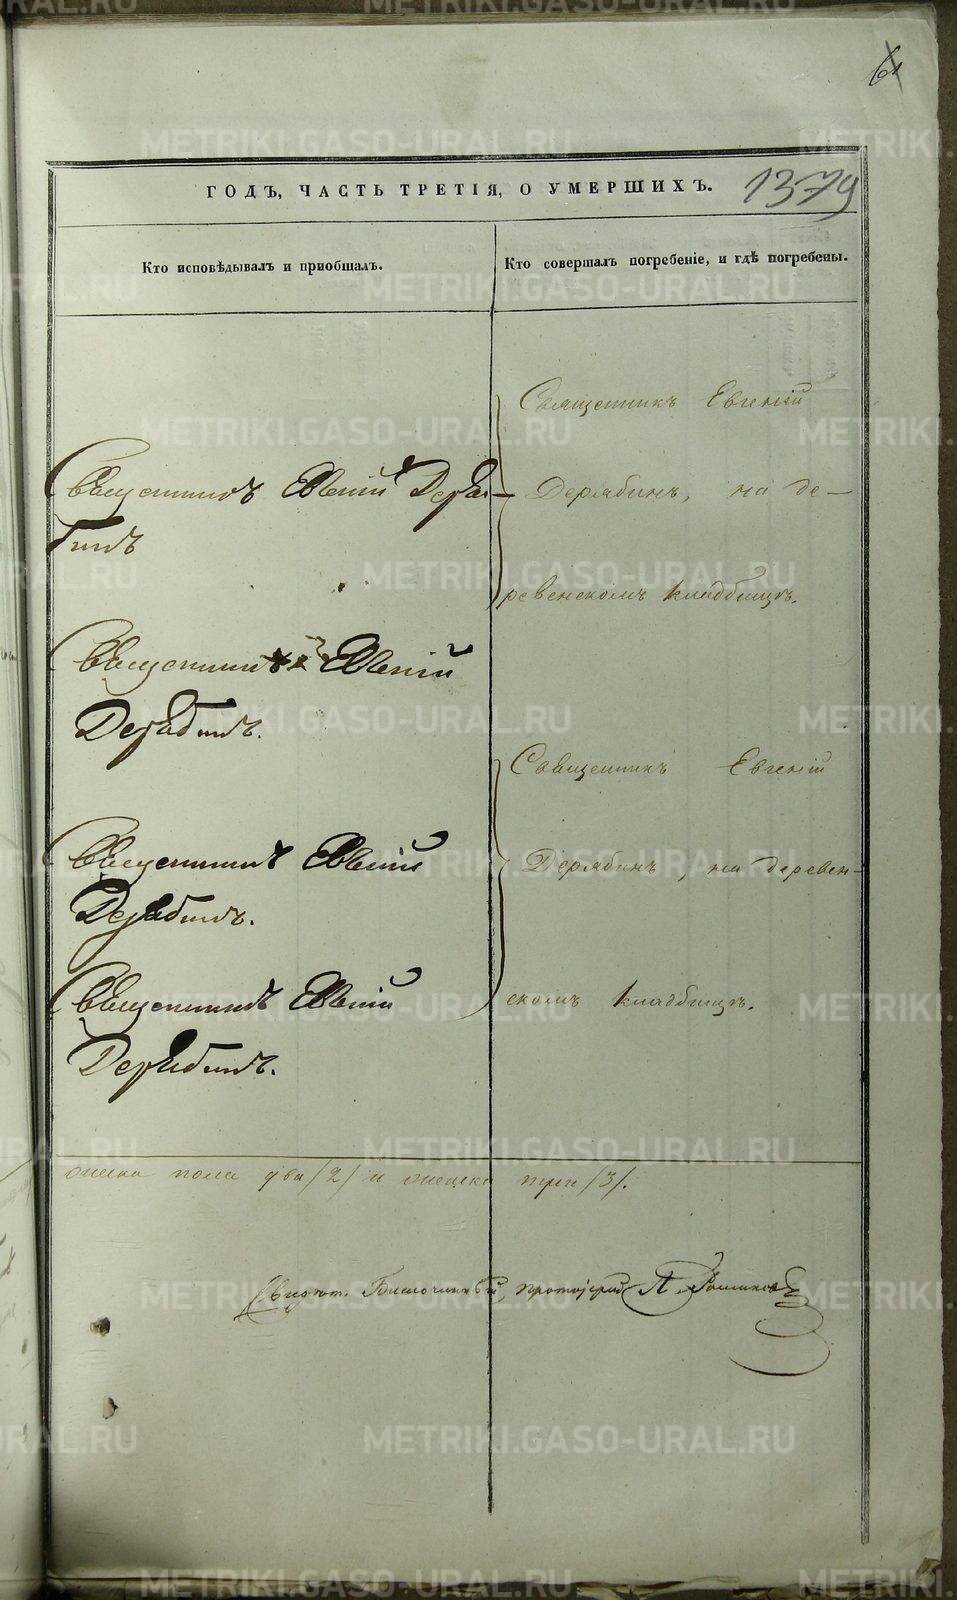 61
ГОДЪ, ЧАСТЬ ТРЕТІЯ, О УМЕРШИХЪ.
1379
Кто исповѣдывалъ и пріобщалъ.
Кто совершалъ погребеніе, и гдѣ погребены.
Священникъ Евгеній Деря-
бинъ
Священникъ Евгеній
Дерябинъ.
Священникъ Евгеній
Дерябинъ.
Священникъ Евгеній
Дерябинъ.
Священникъ Евгеній
Дерябинъ, на де-
ревенскомъ кладбищѣ.
Священникъ Евгеній
Дерябинъ, на деревен-
скомъ кладбищѣ.
пола два /2/ и женска три /3/.
Благочинный, протоіерей
METRIKI.GASO-URAL.RU